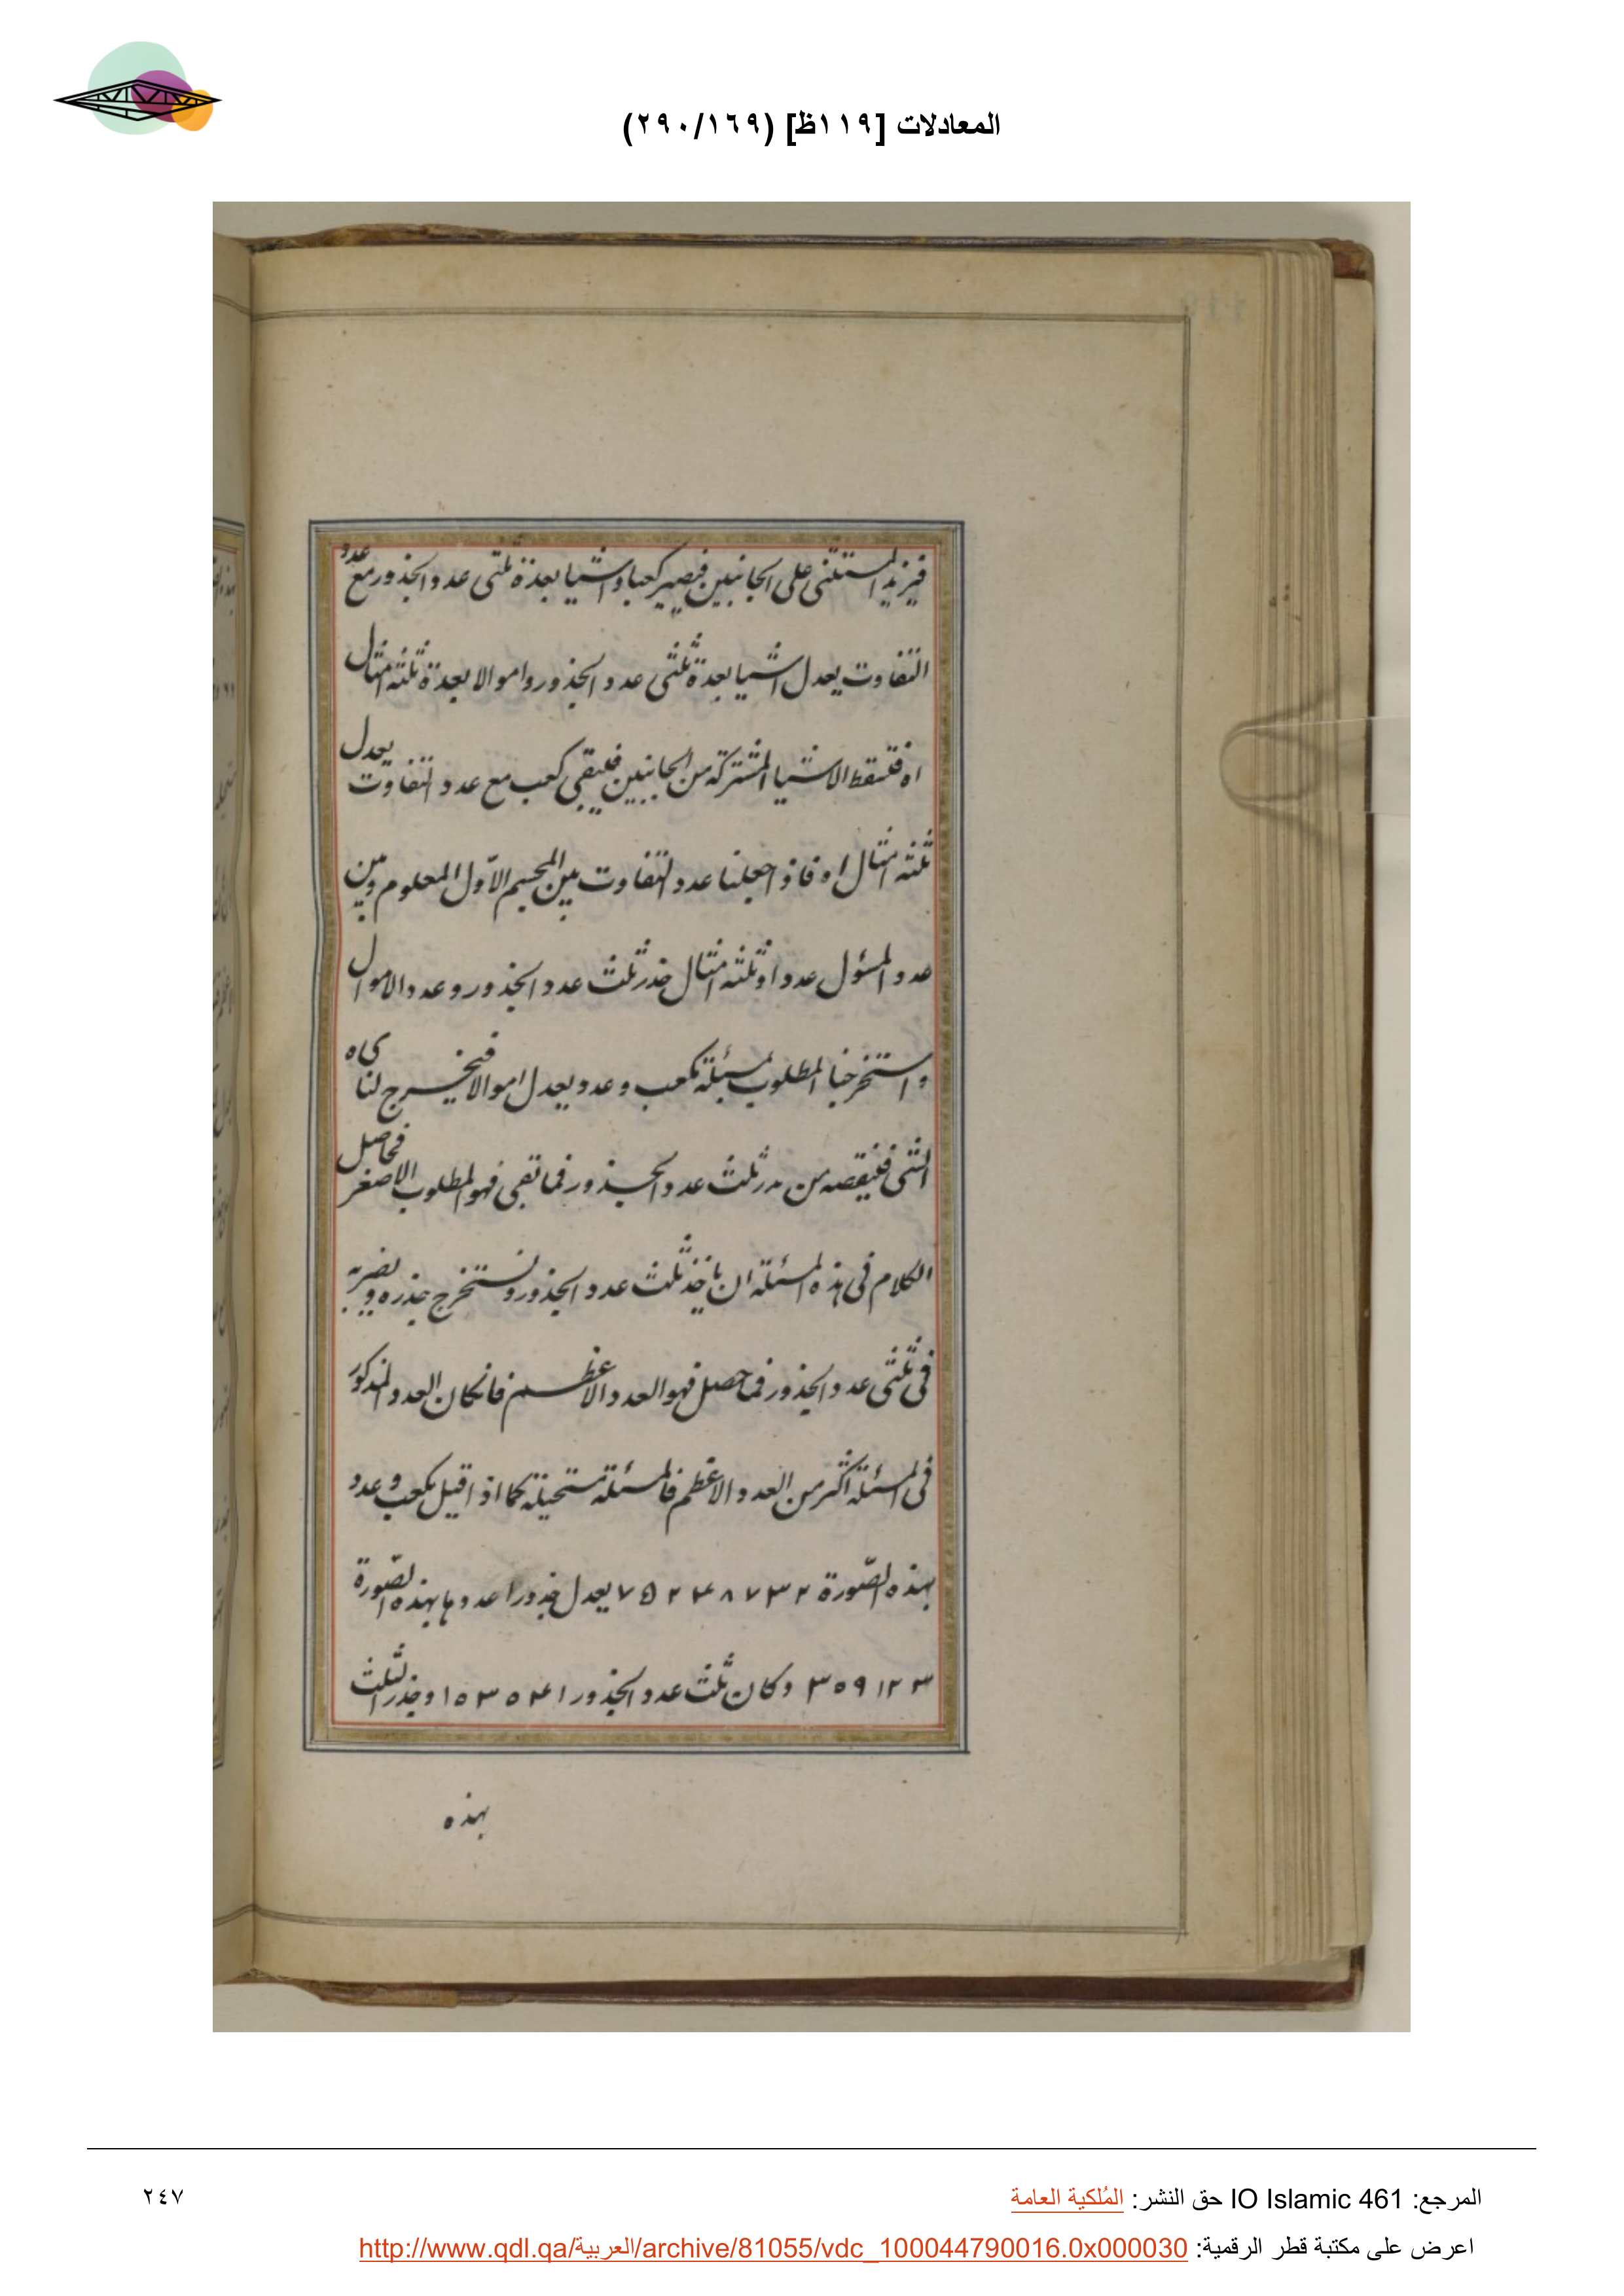 المعادلات [١١٩ظ] (٢٩٠/١٦٩)
فيزيد المستثنى على الجانبين فيصير كعبا واشيا بعدة ثلثى عدد الجذور مع عدد
التفاوت يعدل اشيا بعدة ثلثى عدد الجذور واموالا بعدة ثلثة امثال
اه فتسقط الاشيا المشتركة من الجانبين فليقى كعب مع عدد التفاوت يعدل
ثلثة امثال اه فاذا جعلنا عدد التفاوت بين المجسم الاول المعلوم وبين
عدد المسؤل عددا وثلثة امثال جذر ثلث عدد الجذور وعدد الاموال
واستخرجنا المطلوب بمسئلة كعب وعدد يعدل اموالا فيخرج لنا
الشى فينقصه من جذر ثلث عدد الجذور فما تقى فهو المطلوب الاصغر فحاصل
الكلام فى هذه المسئلة ان ياخذ ثلث عدد الجذور ونستخرج جذره ويضربه
فى ثلثى عدد الجذور فما حصل فهو العدد الاعظم فانكان العدد المذكور
فى المسئلة اكثر من العدد الاعظم فالمسئلة مستحيلة كما اذا قيل كعب وعدد
بهذه الصّورة ٧٥٢٤٨٧٣٢ يعدل جذورا عددها بهذه الصّورة
٣٥٩١٢٣ وكان ثلث عدد الجذور ١٥٣٥٤١ وجذر الثلث
بهذه
المرجع: IO Islamic 461 حق النشر: المُلكية العامة
٢٤٧
اعرض على مكتبة قطر الرقمية: http://www.qdl.qa/العربية/archive/81055/vdc_100044790016.0x000030